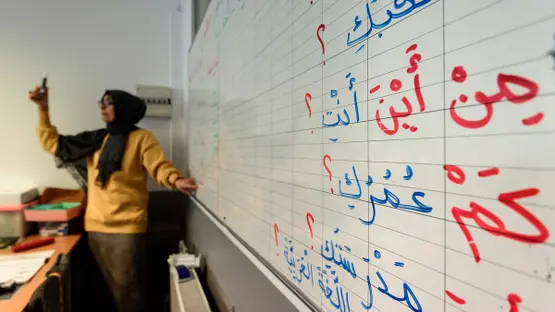 لَقَبُكِ ؟
مِنْ أَيْنَ أَنْتِ ؟
كَمْ عُمُرُكِ ؟
مَدْرَسَتُكِ ؟
اللُّغَةَ الْعَرَبِيَّةَ ؟